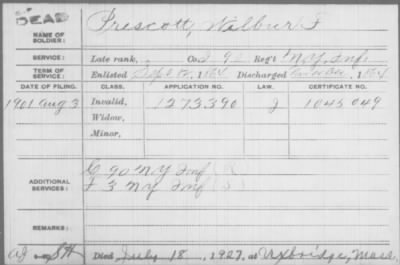 DEAD
NAME OF SOLDIER: Prescott, Wilbur F
SERVICE: Late rank, Co. 90 Reg't N.Y. Inf.
TERM OF SERVICE: Enlisted Sept , 1864 Discharged , 1864
DATE OF FILING. CLASS. APPLICATION NO. LAW. CERTIFICATE NO.
1901 Aug 3 Invalid, 1273390 1045049
Widow,
Minor,
ADDITIONAL SERVICES: G 90 N.Y. Inf
F 3 N.Y. Inf
REMARKS:
Died July 18, 1927, at Uxbridge, Mass.